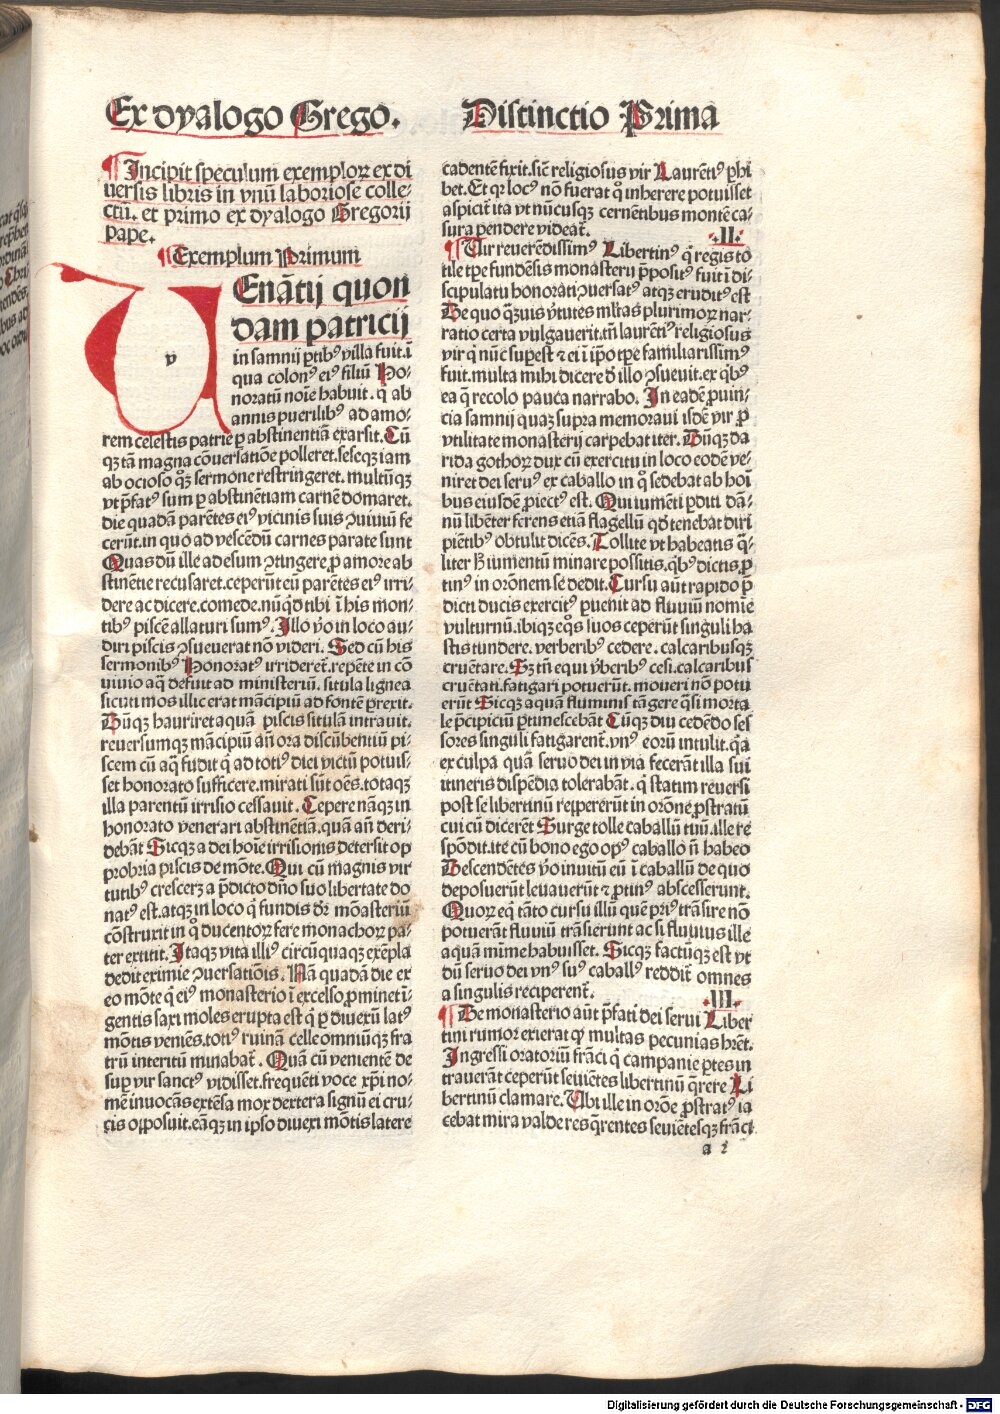 Ex dyalogo Grego.
Distinctio Prima
¶ Incipit speculum exemploꝝ ex di
uersis libris in vnū laboriose colle-
ctū. et primo ex dyalogo Gregorij
pape.
¶ Exemplum Primum
v
Enātij quon
dam patricij
in samnij ꝑtibꝰ villa fuit. ī
qua colonꝰ eiꝰ filiū Ho-
noratū noīe habuit. q̄ ab
annis puerilibꝰ ad amo-
rem celestis patrie ꝑ abstinentiā exarsit. Cū
qꝫ tā magna cōuersatiōne polleret. seseqꝫ iam
ab ocioso qͦꝫ sermone restringeret. multūqꝫ
vt p̄fatꝰ sum ꝑ abstinētiam carnē domaret.
die quadā parētes eiꝰ vicinis suis ꝯuiuiū fe
cerūt. in quo ad vescēdū carnes parate sunt
Quas dū ille ad esum ꝯtingere. ꝓ amore ab
stinētie recusaret. ceperūt eū parētes eiꝰ irri-
dere ac dicere. comede. nūqͥd tibi ī his mon-
tibꝰ piscē allaturi sumꝰ. Illo v̄o in loco au-
diri piscis ꝯsueuerat nō videri. Sed cū his
sermonibꝰ Honoratꝰ irrideret̄. repēte in cō
uiuio aq̄ defuit ad ministeriū. situla lignea
sicuti mos illic erat mācipiū ad fontē prexit.
Dūqꝫ hauriret aquā piscis situlā intrauit.
reuersumqꝫ mācipiū an̄ ora discūbentiū pi-
scem cū aq̄ fudit q̄ ad totiꝰ diei victū potuis-
set honorato sufficere. mirati sūt oēs. totaqꝫ
illa parentū irrisio cessauit. Cepere nāqꝫ in
honorato venerari abstinētiā. quā an̄ deri-
debāt Sicqꝫ a dei hoīe irrisionis detersit op
probria piscis de mōte. Qui cū magnis vir
tutibꝰ cresceret a p̄dicto dn̄o suo libertate do
natꝰ est. atqꝫ in loco q̄ fundis dr̄ mōasteriū
cōstruxit in qͦ ducentoꝝ fere monachoꝝ pa-
ter extitit. Itaqꝫ vita illiꝰ circūquaqꝫ exēpla
dedit eximie ꝯuersatiōis. Nā quadā die ex
eo mōte q̄ eiꝰ monasterio ī excelso ꝓminet ī-
gentis saxi moles erupta est q̄ ꝑ diuexū latꝰ
mōtis veniēs. totiꝰ ruinā celle omniūqꝫ fra
trū interitū minabat̄. Quā cū venientē de
suꝑ vir sanctꝰ vidisset. frequēti voce xp̄i no-
mē inuocās extēsa mox dextera signū ei cru-
cis opposuit. eāqꝫ in ipso diuexi mōtis latere
cadentē fixit. sic̄ religiosus vir Laurētiꝰ ꝑhi
bet. Et qꝛ locꝰ nō fuerat qͦ inherere potuisset
aspicit̄ ita vt nūcusqꝫ cernētibus montē ca-
sura pendere videat̄.
.II.
¶ Vir reuerēdissimꝰ Libertinꝰ q̄ regis to
tile tꝑe fundēsis monasterij p̄positꝰ fuit ī di-
scipulatu honorati ꝯuersatꝰ atqꝫ eruditꝰ est
De quo qͣꝫuis v̄tutes mltas plurimoꝝ nar-
ratio certa vulgauerit. tn̄ laurētiꝰ religiosus
vir q̄ nūc suꝑest ⁊ ei ī ip̄o tꝑe familiarissimꝰ
fuit. multa mihi dicere d̄ illo ꝯsueuit. ex qͥbꝰ
ea q̄ recolo pauca narrabo. In eadē ꝓuin-
cia samnij quaꝫ supra memoraui isdē vir ꝓ
vtilitate monasterij carpebat iter. Dūqꝫ da
rida gothoꝝ dux cū exercitu in loco eodē ve-
niret dei seruꝰ ex caballo in qͦ sedebat ab hoī
bus eiusdē ꝓiectꝰ est. Qui iumēti ꝑditi dā-
nū libēter ferens etiā flagellū qd̄ tenebat diri
pientibꝰ obtulit dicēs. Tollite vt habeatis q̄-
liter h̄ iumentū minare possitis. qͥbꝰ dictis. ꝓ
tinꝰ in orōnem se dedit. Cursu aūt rapido p̄
dicti ducis exercitꝰ ꝑuenit ad fluuiū nomīe
vulturnū. ibiqꝫ eqͦs suos ceperūt singuli ha
stis tundere. verberibꝰ cedere. calcaribusqꝫ
cruētare. Sꝫ tn̄ equi v̄beribꝰ cesi. calcaribus
cruētati. fatigari potuerūt. moueri nō potu
erūt Sicqꝫ aquā fluminis tāgere qͣsi morta
le p̄cipiciū ꝑtimescebāt Cūqꝫ diu cedēdo ses
sores singuli fatigarent̄. vnꝰ eorū intulit. qͣ
ex culpa quā seruo dei in via fecerāt illa sui
itineris dispēdia tolerabāt. q̄ statim reuersi
post se libertinū repererūt in orōne ꝓstratū
cui cū dicerēt Surge tolle caballū tuū. ille re
spōdit. ite cū bono ego opꝰ caballo n̄ habeo
Descendētes v̄o inuitū eū ī caballū de quo
deposuerūt leuauerūt ⁊ ꝓtinꝰ abscesserunt.
Quoꝝ eqͥ tāto cursu illū quē priꝰ trāsire nō
potuerāt fluuiū trāsierunt ac si fluuius ille
aquā mīme habuisset. Sicqꝫ factūqꝫ est vt
dū seruo dei vnꝰ suꝰ caballꝰ reddit̄ omnes
a singulis reciperent̄.
.III.
¶ De monasterio aūt p̄fati dei serui Liber
tini rumor exierat qꝛ multas pecunias hr̄et.
Ingressi oratoriū frāci q̄ campanie ꝑtes in
trauerāt ceperūt seuiētes libertinū q̄rere Li
bertinū clamare. Vbi ille in orōe ꝓstratꝰ ia
cebat mira valde res q̄rentes seuiētesqꝫ frāci
a 2
Digitalisierung gefördert durch die Deutsche Forschungsgemeinschaft - DFG